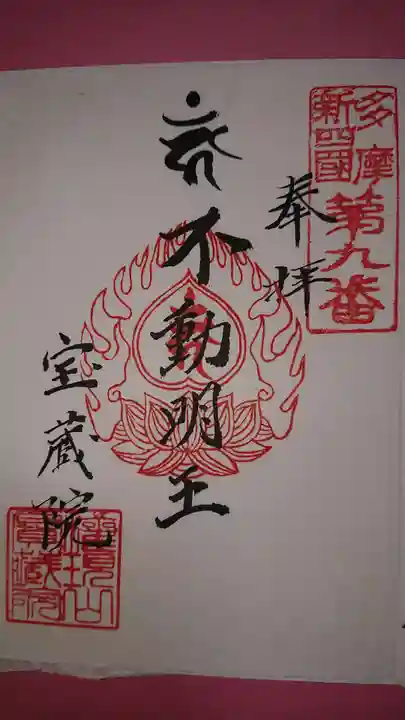 多摩
新四國
第九番
奉拝
不動明王
宝蔵院